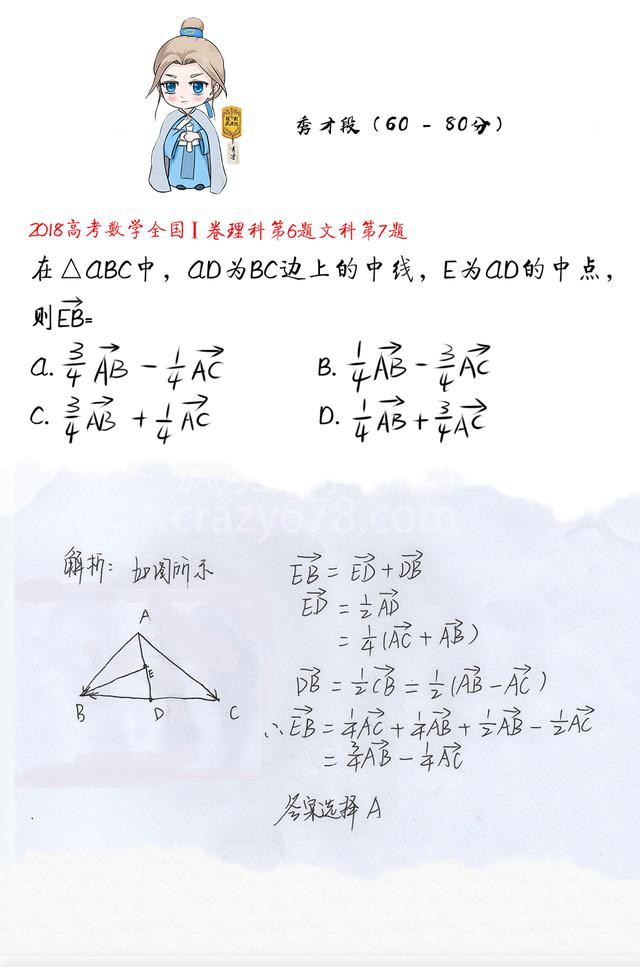 秀才
秀才段（60 - 80分）
2018高考数学全国I卷理科第6题文科第7题
在△ABC中，AD为BC边上的中线，E为AD的中点，
则\overrightarrow{EB}=
A. \frac{3}{4}\overrightarrow{AB} - \frac{1}{4}\overrightarrow{AC} B. \frac{1}{4}\overrightarrow{AB} - \frac{3}{4}\overrightarrow{AC}
C. \frac{3}{4}\overrightarrow{AB} + \frac{1}{4}\overrightarrow{AC} D. \frac{1}{4}\overrightarrow{AB} + \frac{3}{4}\overrightarrow{AC}
crazy678.com
解析：如图所示
A
E
B D C
\overrightarrow{EB} = \overrightarrow{ED} + \overrightarrow{DB}
\overrightarrow{ED} = \frac{1}{2}\overrightarrow{AD}
= \frac{1}{4}(\overrightarrow{AC} + \overrightarrow{AB})
\overrightarrow{DB} = \frac{1}{2}\overrightarrow{CB} = \frac{1}{2}(\overrightarrow{AB} - \overrightarrow{AC})
∴\overrightarrow{EB} = \frac{1}{4}\overrightarrow{AC} + \frac{1}{4}\overrightarrow{AB} + \frac{1}{2}\overrightarrow{AB} - \frac{1}{2}\overrightarrow{AC}
= \frac{3}{4}\overrightarrow{AB} - \frac{1}{4}\overrightarrow{AC}
答案选择A